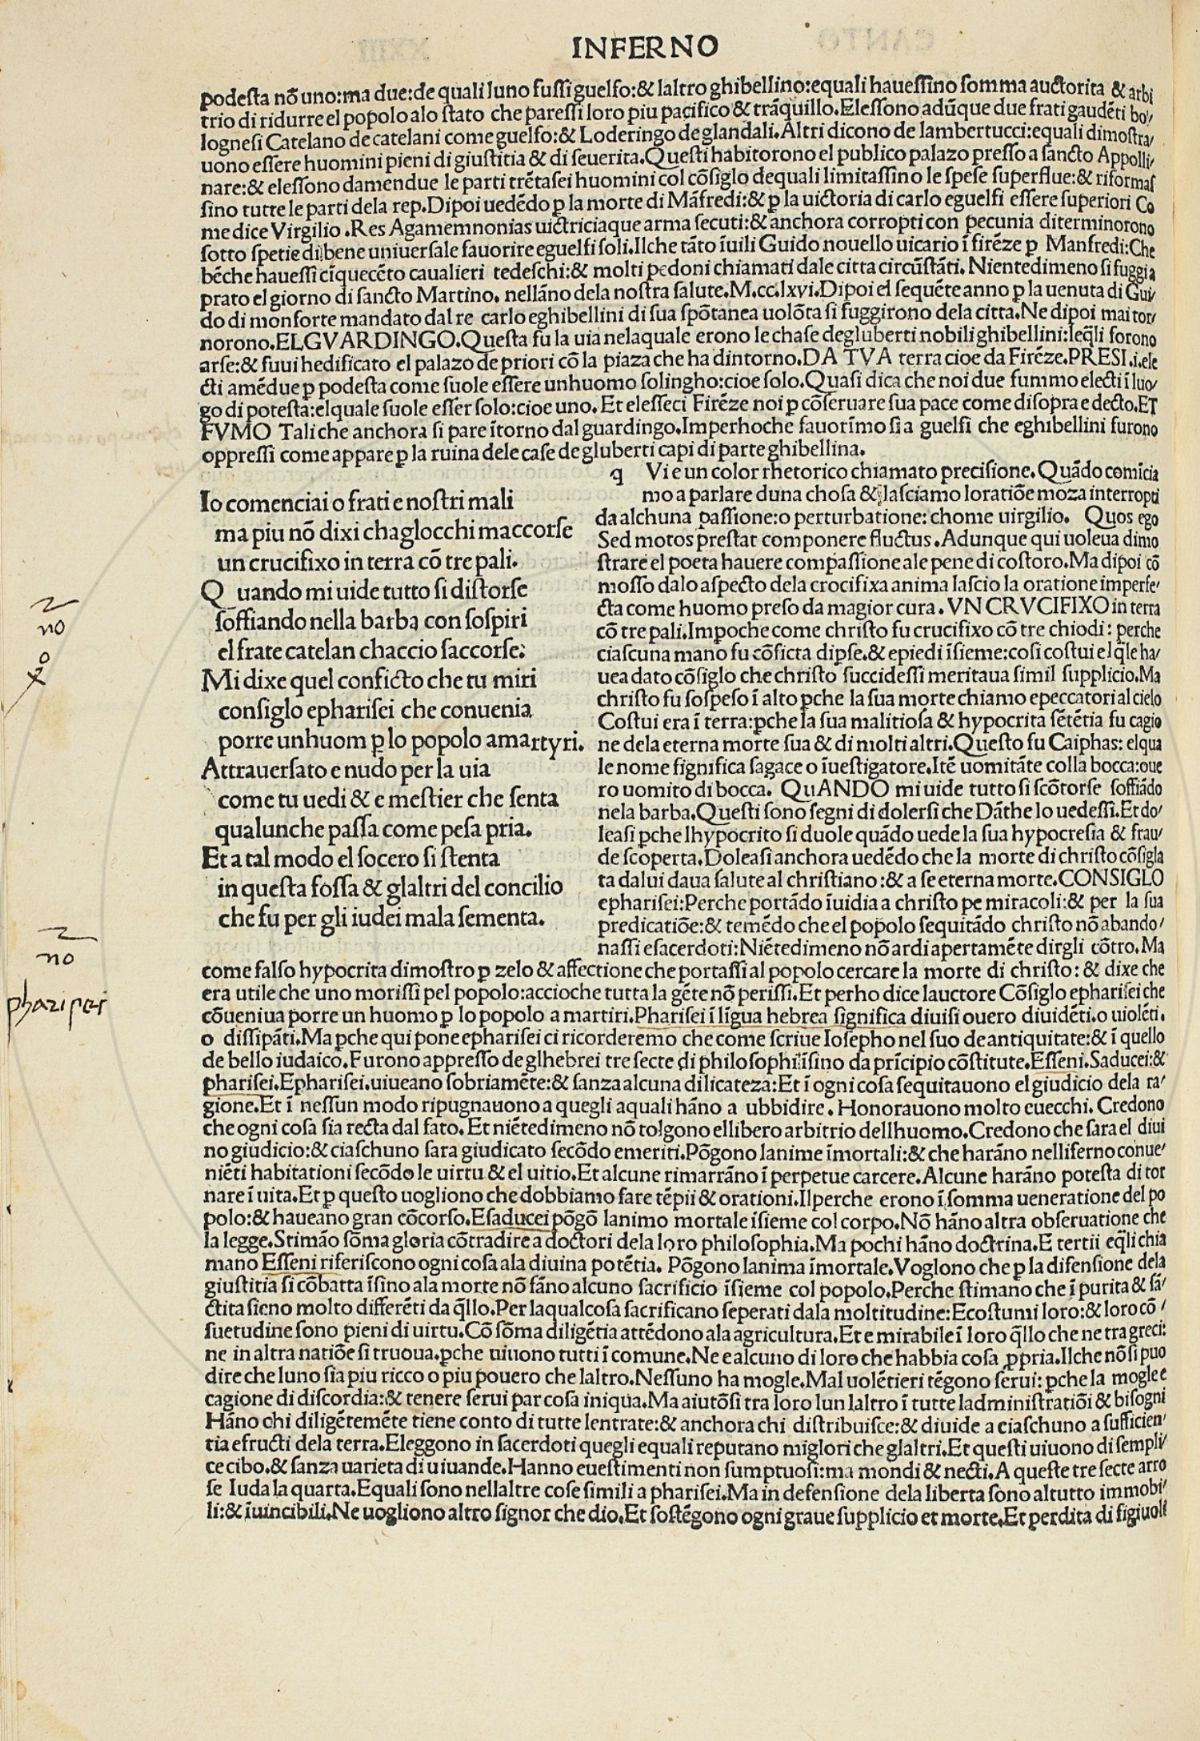 INFERNO
podesta nõ uno:ma due:de quali luno fuſſi guelfo:& laltro ghibellino:equali haueſſino ſomma auctorita & arbi
trio di ridurre el popolo alo ſtato che pareſſi loro piu pacifico & trãquillo.Eleſſono adũque due frati gaudẽti bo/
logneſi Catelano de catelani come guelfo:& Loderingo de glandali.Altri dicono de lambertucci:equali dimoſtra/
uono eſſere huomini pieni di giuſtitia & di ſeuerita.Queſti habitorono el publico palazo preſſo a ſancto Appolli/
nare:& eleſſono damendue le parti trẽtaſei huomini col cõſiglo dequali limitaſſino le ſpeſe ſuperflue:& riformaſ
ſino tutte le parti dela rep.Dipoi uedẽdo ꝑ la morte di Mãfredi:& ꝑ la uictoria di carlo eguelfi eſſere ſuperiori Co
me dice Virgilio .Res Agamemnonias uictriciaque arma ſecuti:& anchora corropti con pecunia diterminorono
ſotto ſpetie di bene uniuerſale fauorire eguelfi ſoli.Ilche tãto ĩuili Guido nouello uicario ĩ firẽze ꝑ Manfredi:Che
bẽche haueſſi cĩquecẽto caualieri tedeſchi:& molti pedoni chiamati dale citta circũſtãti.Nientedimeno ſi fuggi a
prato el giorno di ſancto Martino. nellãno dela noſtra ſalute.M.cc.lxvi.Dipoi el ſequẽte anno ꝑ la uenuta di Gui/
do di monforte mandato dal re carlo eghibellini di ſua ſpõtanea uolõta ſi fuggirono dela citta.Ne dipoi mai tor/
norono.EL GVARDINGO.Queſta fu la uia nelaquale erono le chaſe degluberti nobili ghibellini:leq̃li forono
arſe:& fuui hedificato el palazo de priori cõ la piaza che ha dintorno.DA TVA terra cioe da Firẽze.PRESI.i.ele
cti amẽdue ꝑ podeſta come ſuole eſſere unhuomo ſolingho:cioe ſolo.Quaſi dica che noi due fummo electi ĩ luo/
go di poteſta:elquale ſuole eſſer ſolo:cioe uno.Et eleſſeci Firẽze noi ꝑ cõſeruare ſua pace come diſopra e decto.ET
FVMO Tali che anchora ſi pare ĩtorno dal guardingo.Imperhoche fauorĩmo ſi a guelfi che eghibellini furono
oppreſſi come appare ꝑ la ruina dele caſe de gluberti capi di parte ghibellina.
Io comenciai o frati e noſtri mali
ma piu nõ dixi chaglocchi maccorſe
un crucifixo in terra cõ tre pali.
Quando mi uide tutto ſi diſtorſe
ſoffiando nella barba con ſoſpiri
el frate catelan chaccio ſaccorſe:
Mi dixe quel conficto che tu miri
conſiglo epharisei che conuenia
porre unhuom ꝑ lo popolo amartyri.
Attrauerſato e nudo per la uia
come tu uedi & e meſtier che ſenta
qualunche paſſa come peſa pria.
Et a tal modo el ſocero ſi ſtenta
in queſta foſſa & glaltri del concilio
che fu per gli iudei mala ſementa.
q Vi e un color rhetorico chiamato preciſione.Quãdo comĩcia
mo a parlare duna choſa & laſciamo loratiõe moza interropti
da alchuna paſſione:o perturbatione: chome uirgilio. Quos ego
Sed motos preſtat componere fluctus .Adunque qui uoleua dimo
ſtrare el poeta hauere compaſſione ale pene di coſtoro.Ma dipoi cõ
moſſo dalo aſpecto dela crocifixa anima laſcio la oratione imperfe/
cta come huomo preſo da magior cura .VN CRVCIFIXO in terra
cõ tre pali.Impoche come chriſto fu crucifixo cõ tre chiodi: perche
ciaſcuna mano fu cõficta dipſe.& epiedi ĩſieme:coſi coſtui el q̃le ha/
uea dato cõſiglo che chriſto ſuccideſſi meritaua ſimil ſupplicio.Ma
chriſto fu ſoſpeſo ĩ alto ꝑche la ſua morte chiamo epeccatori al cielo
Coſtui era ĩ terra:ꝑche la ſua malitioſa & hypocrita ſẽtẽtia fu cagio
ne dela eterna morte ſua & di molti altri.Queſto fu Caiphas: elqua
le nome ſignifica ſagace o ĩueſtigatore.Itẽ uomitãte colla bocca:oue
ro uomito di bocca. QuANDO mi uide tutto ſi ſcõtorſe ſoffiãdo
nela barba.Queſti ſono ſegni di dolerſi che Dãthe lo uedeſſi.Et do/
leaſi ꝑche lhypocrito ſi duole quãdo uede la ſua hypocreſia & frau/
de ſcoperta.Doleaſi anchora uedẽdo che la morte di chriſto cõſigla
ta dalui daua ſalute al chriſtiano:& a ſe eterna morte.CONSIGLO
epharisei:Perche portãdo ĩuidia a chriſto pe miracoli:& per la ſua
predicatiõe:& temẽdo che el popolo ſequitãdo chriſto nõ abando/
naſſi eſacerdoti:Niẽtedimeno nõ ardi apertamẽte dirgli cõtro.Ma
come falſo hypocrita dimoſtro ꝑ zelo & affectione che portaſſi al popolo cercare la morte di chriſto: & dixe che
era utile che uno moriſſi pel popolo:accioche tutta la gẽte nõ periſſi.Et perho dice lauctore Cõſiglo epharisei che
cõueniua porre un huomo ꝑ lo popolo a martiri.Pharisei ĩ lĩgua hebrea ſignifica diuiſi ouero diuidẽti.o uiolẽti.
o diſſipãti.Ma ꝑche qui pone epharisei ci ricorderemo che come ſcriue Ioſepho nel ſuo de antiquitate:& ĩ quello
de bello iudaico.Furono appreſſo de glhebrei tre ſecte di philoſophi ĩſino da prĩcipio cõſtitute.Eſſeni.Saducei:&
pharisei.Epharisei.uiueano ſobriamẽte:& ſanza alcuna dilicateza:Et ĩ ogni coſa ſequitauono el giudicio dela ra/
gione.Et ĩ neſſun modo ripugnauono a quegli aquali hãno a ubbidire.Honorauono molto euecchi.Credono
che ogni coſa ſia recta dal fato.Et niẽtedimeno nõ tolgono ellibero arbitrio dellhuomo.Credono che ſara el diui
no giudicio:& ciaſchuno ſara giudicato ſecõdo emeriti.Põgono lanime ĩmortali:& che harãno nellĩferno conue/
niẽti habitationi ſecõdo le uirtu & el uitio.Et alcune rimarrãno ĩ perpetue carcere.Alcune harãno poteſta di tor
nare ĩ uita.Et ꝑ queſto uogliono che dobbiamo fare tẽpii & orationi.Ilperche erono ĩ ſomma ueneratione del po
polo:& haueano gran cõcorſo.Eſaducei põgõ lanimo mortale ĩſieme col corpo.Nõ hãno altra obſeruatione che
la legge.Stimão ſõma gloria cõtradire a doctori dela loro philoſophia.Ma pochi hãno doctrina.E tertii eq̃li chia
mano Eſſeni riferiſcono ogni coſa ala diuina potẽtia. Põgono lanima ĩmortale.Voglono che ꝑ la difenſione dela
giuſtitia ſi cõbatta ĩſino ala morte nõ fãno alcuno ſacrificio ĩſieme col popolo.Perche ſtimano che ĩ purita & ſã/
ctita ſieno molto differẽti da q̃llo.Per laqualcoſa ſacrificano ſeperati dala moltitudine:Ecoſtumi loro:& loro cõ/
ſuetudine ſono pieni di uirtu.Cõ ſõma diligẽtia attẽdono ala agricultura.Et e mirabile ĩ loro q̃llo che ne tra greci:
ne in altra natiõe ſi truoua.ꝑche uiuono tutti ĩ comune.Ne e alcuno di loro che habbia coſa ꝓpria.Ilche nõ ſi puo
dire che luno ſia piu ricco o piu pouero che laltro.Neſſuno ha mogle.Mal uolẽtieri tẽgono ſerui: ꝑche la mogle e
cagione di diſcordia:& tenere ſerui par coſa iniqua.Ma aiutõſi tra loro lun laltro ĩ tutte ladminiſtratiõi & biſogni
Hãno chi diligẽtemẽte tiene conto di tutte lentrate:& anchora chi diſtribuiſce:& diuide a ciaſchuno a ſufficien/
tia efructi dela terra.Eleggono in ſacerdoti quegli equali reputano miglori che glaltri.Et queſti uiuono di ſempli/
ce cibo.& ſanza uarieta di uiuande.Hanno eueſtimenti non ſumptuoſi:ma mondi & necti.A queſte tre ſecte arro
ſe Iuda la quarta.Equali ſono nellaltre coſe ſimili a pharisei.Ma in defenſione dela liberta ſono altutto immobi/
li:& ĩuincibili.Ne uogliono altro ſignor che dio.Et ſoſtẽgono ogni graue ſupplicio et morte.Et perdita di figiuoli
no
xo
no
pharisei